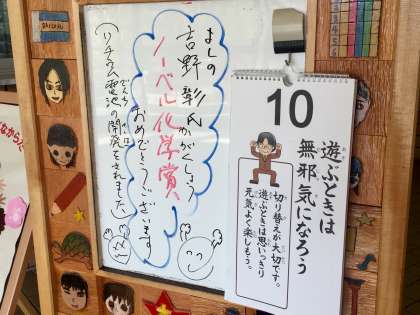 ましの
吉野彰氏
ノーベル化学賞
かがくしょう
おめでとうございます
でんち
(リチウム電池の開発をされました)
10
遊ぶときは
無邪気になろう
切り替えが大切です。
遊ぶときは思いっきり
元気よく楽しもう。